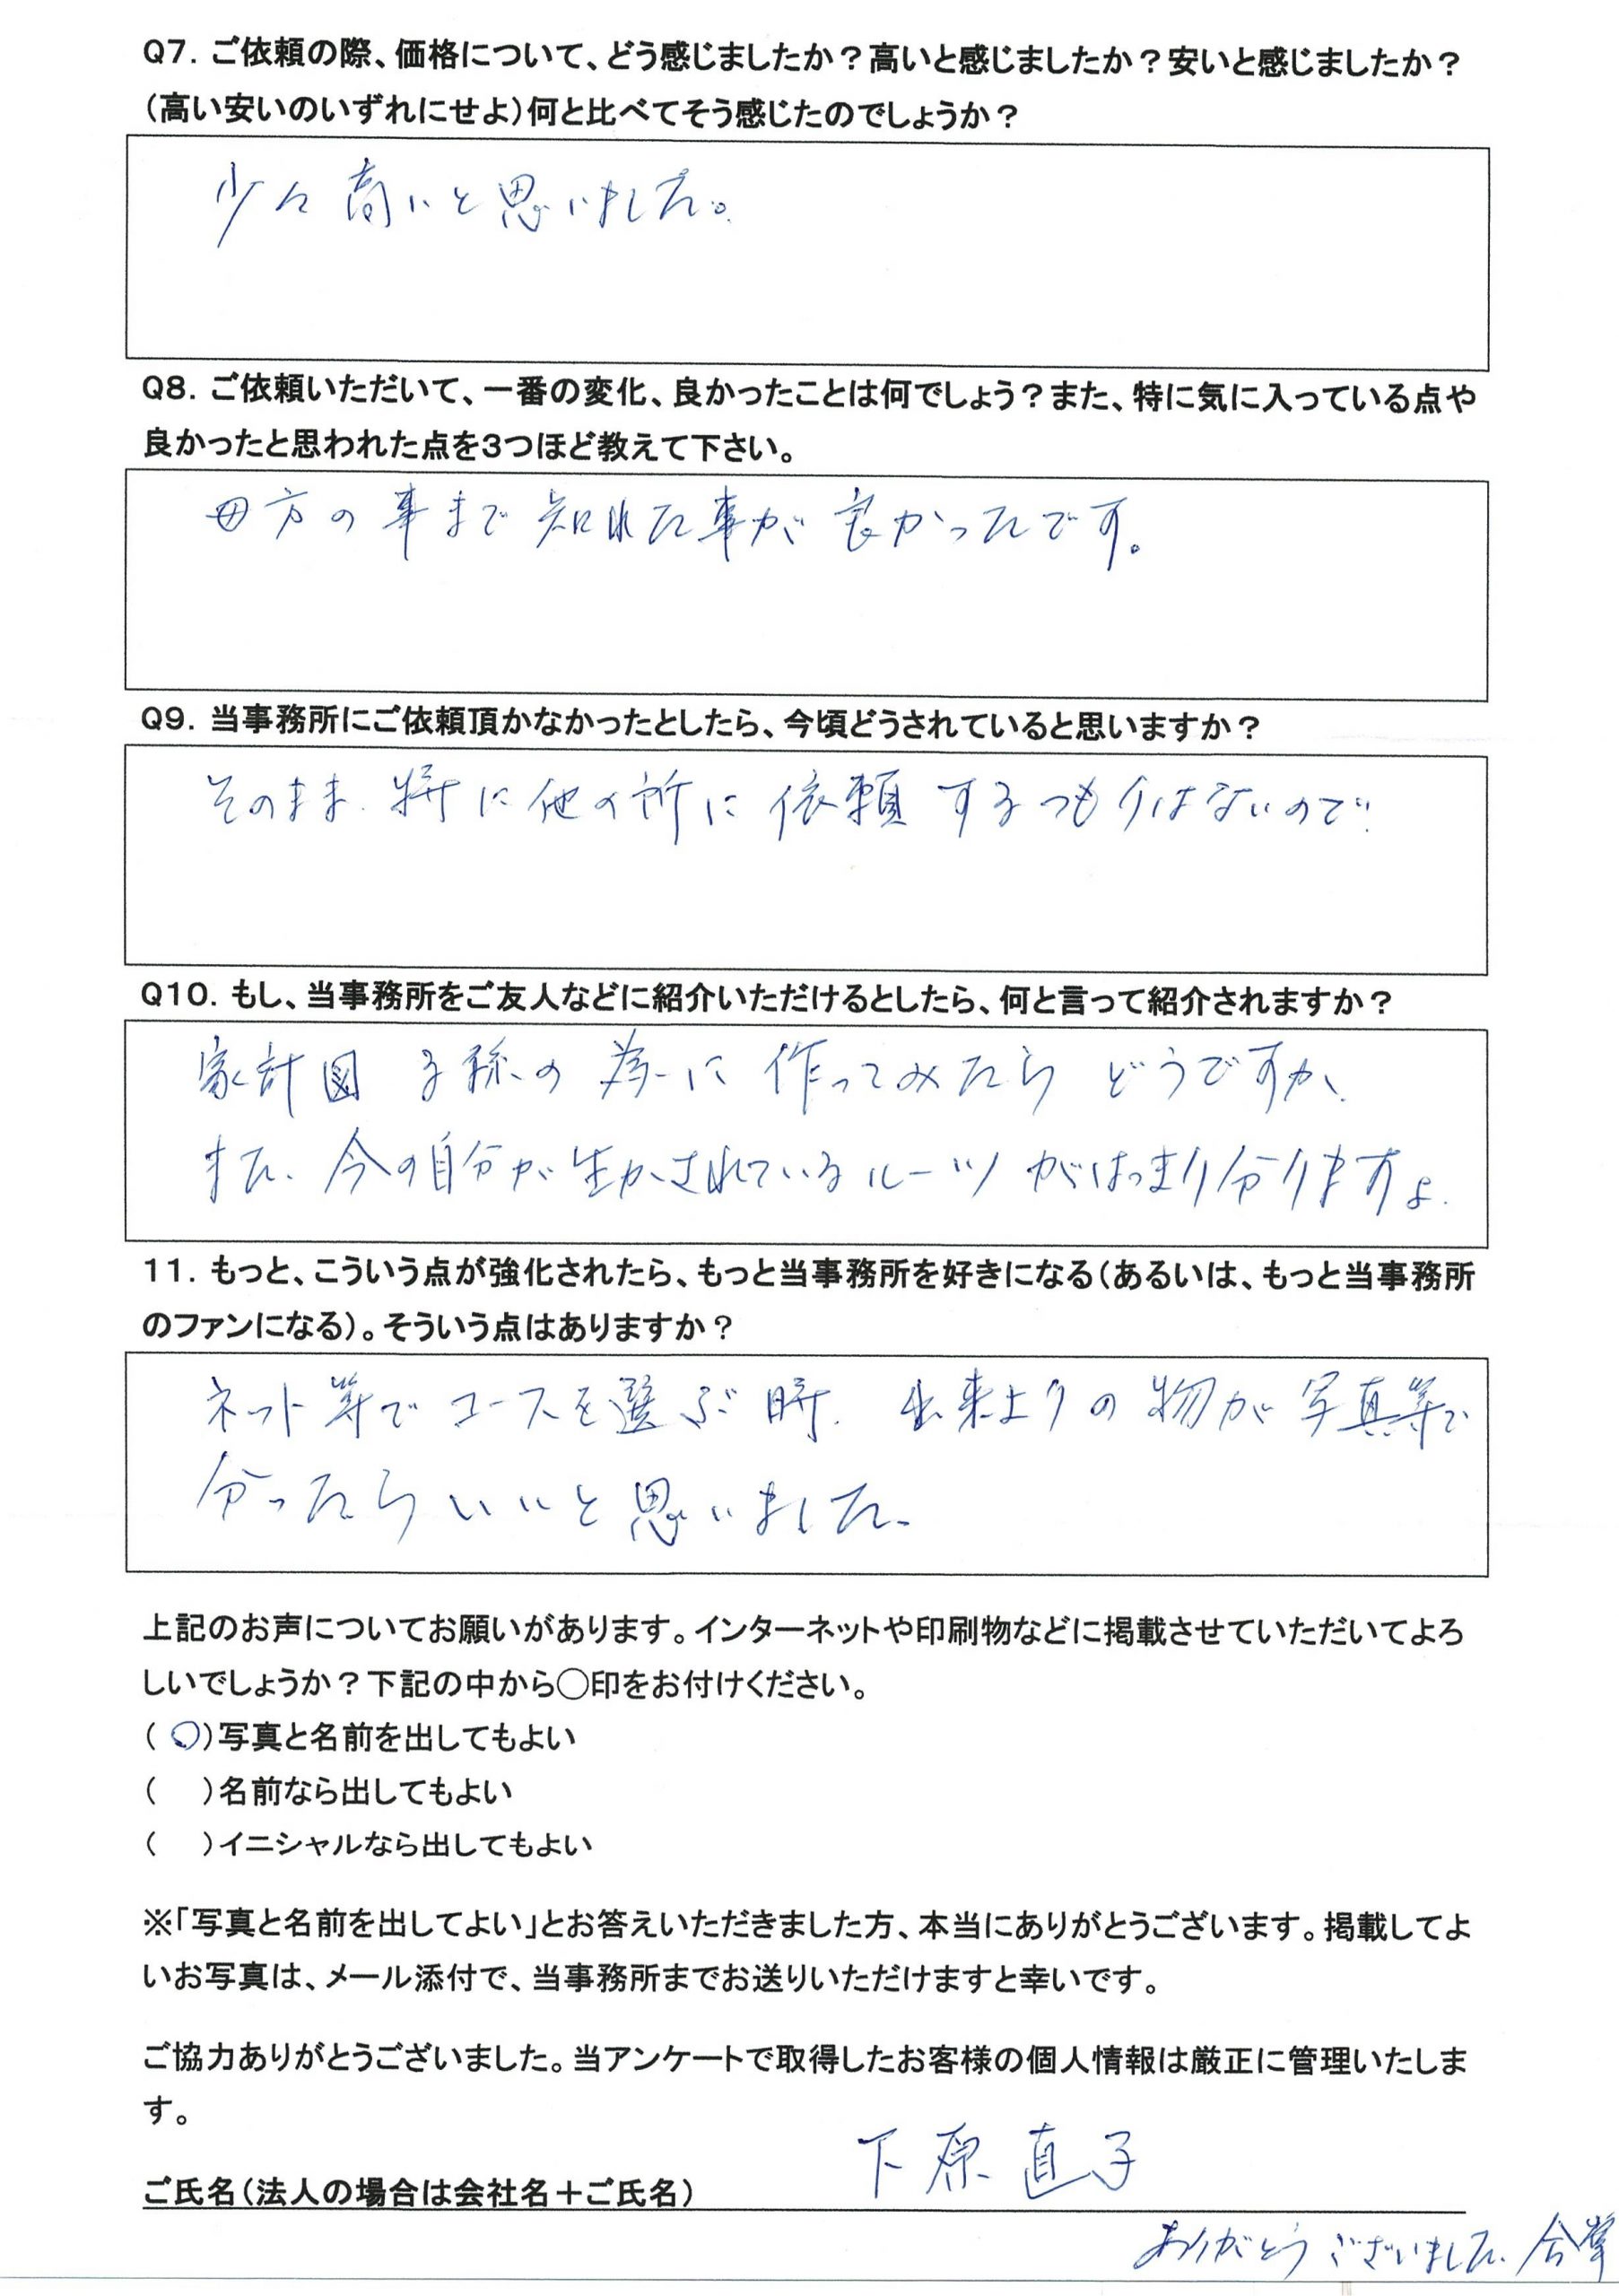 Q7. ご依頼の際、価格について、どう感じましたか？高いと感じましたか？安いと感じましたか？
（高い安いのいずれにせよ）何と比べてそう感じたのでしょうか？
少々高いと思いました。
Q8. ご依頼いただいて、一番の変化、良かったことは何でしょう？また、特に気に入っている点や
良かったと思われた点を３つほど教えて下さい。
母方の事まで知れた事が良かったです。
Q9. 当事務所にご依頼頂かなかったとしたら、今頃どうされていると思いますか？
そのまま、特に他の所に依頼するつもりはないので
Q10. もし、当事務所をご友人などに紹介いただけるとしたら、何と言って紹介されますか？
家計図 子孫の為に作ってみたらどうですか、
また、今の自分が生かされているルーツがはっきり分りますよ.
11. もっと、こういう点が強化されたら、もっと当事務所を好きになる（あるいは、もっと当事務所
のファンになる）。そういう点はありますか？
ネット等でコースを選ぶ時、出来上りの物が写真等で
分ったらいいと思いました。
上記のお声についてお願いがあります。インターネットや印刷物などに掲載させていただいてよろ
しいでしょうか？下記の中から〇印をお付けください。
（〇）写真と名前を出してもよい
（　）名前なら出してもよい
（　）イニシャルなら出してもよい
※「写真と名前を出してよい」とお答えいただきました方、本当にありがとうございます。掲載してよ
いお写真は、メール添付で、当事務所までお送りいただけますと幸いです。
ご協力ありがとうございました。当アンケートで取得したお客様の個人情報は厳正に管理いたしま
す。
下原 直子
ご氏名（法人の場合は会社名＋ご氏名）
ありがとうございました。合掌